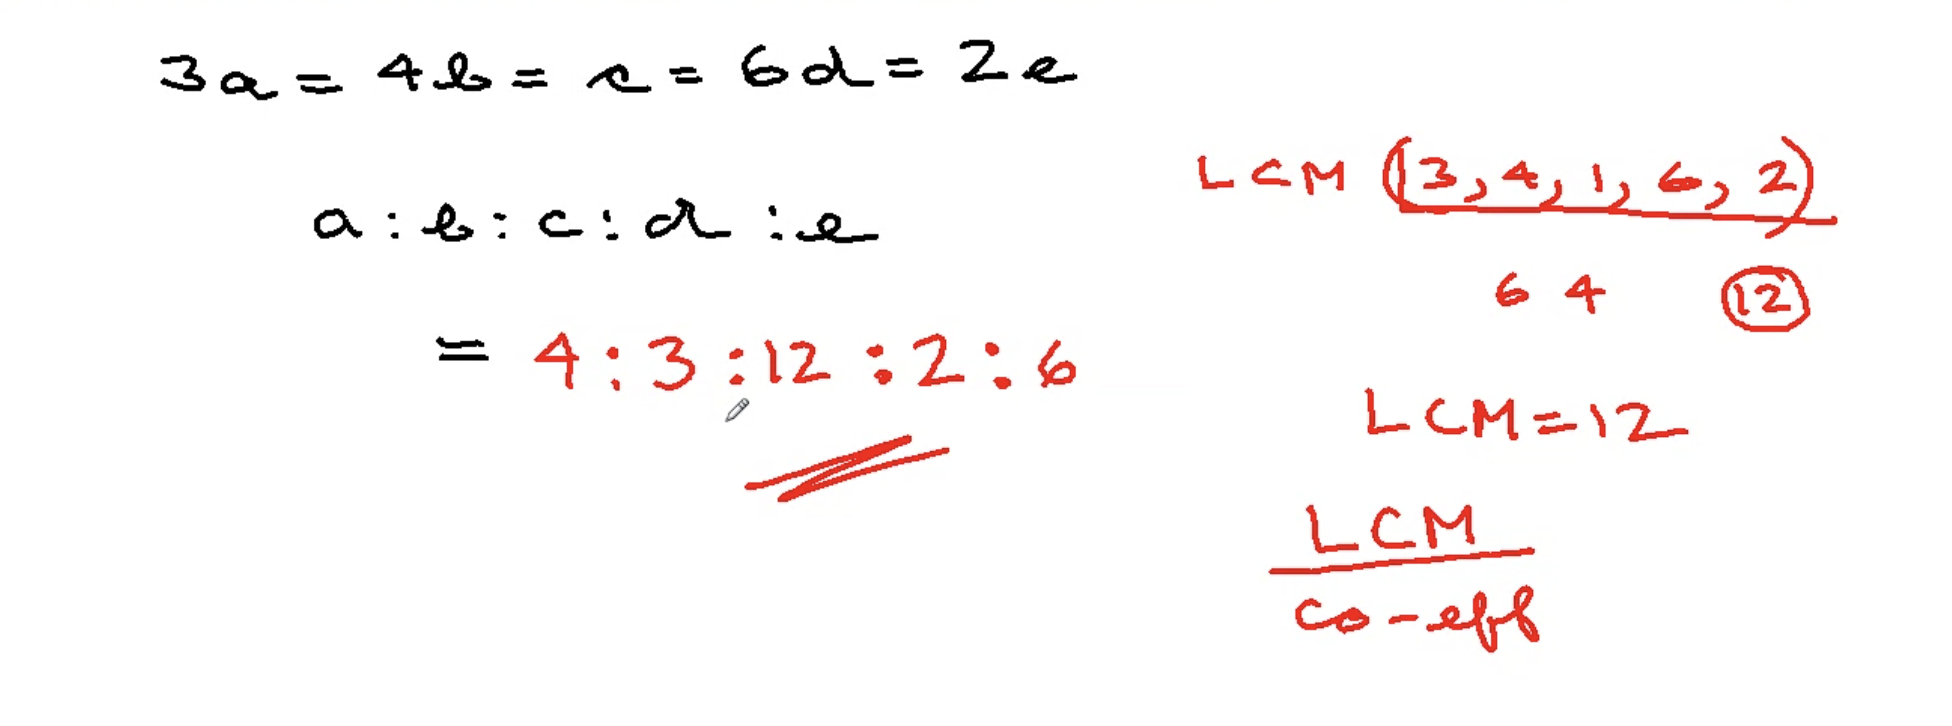 3a = 4b = c = 6d = 2e
a : b : c : d : e
= 4 : 3 : 12 : 2 : 6
LCM (3, 4, 1, 6, 2)
6 4 12
LCM = 12
LCM
co-eff